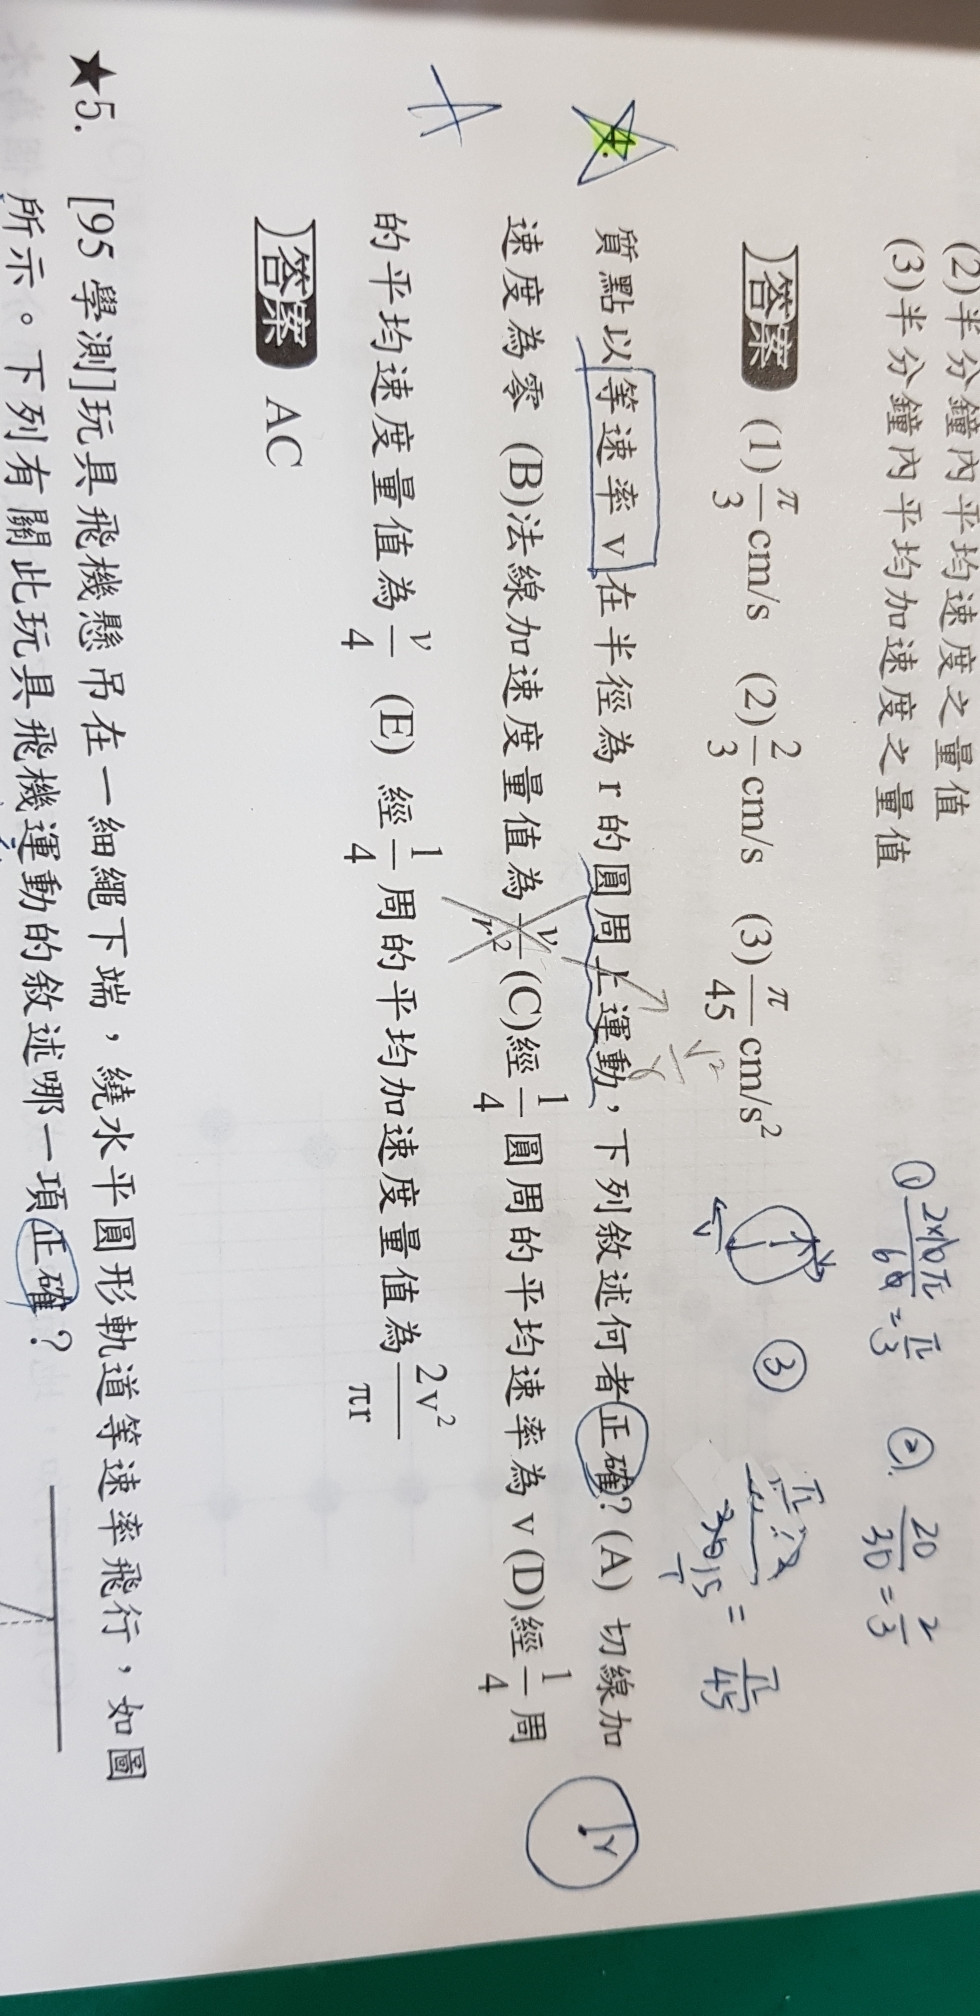 (2)半分鐘內平均速度之量值
(3)半分鐘內平均加速度之量值
① 2×10π/60 = π/3 ② 20/30 = 2/3
答案 (1)π/3 cm/s (2)2/3 cm/s (3)π/45 cm/s²
③ = π/45
v²/r
4. 質點以等速率 v 在半徑為 r 的圓周上運動，下列敘述何者正確? (A) 切線加
速度為零 (B)法線加速度量值為 v/r² (C)經 1/4 圓周的平均速率為 v (D)經 1/4 周
的平均速度量值為 v/4 (E) 經 1/4 周的平均加速度量值為 2v²/πr
答案 AC
★5. [95 學測]玩具飛機懸吊在一細繩下端，繞水平圓形軌道等速率飛行，如圖
所示。下列有關此玩具飛機運動的敘述哪一項正確？